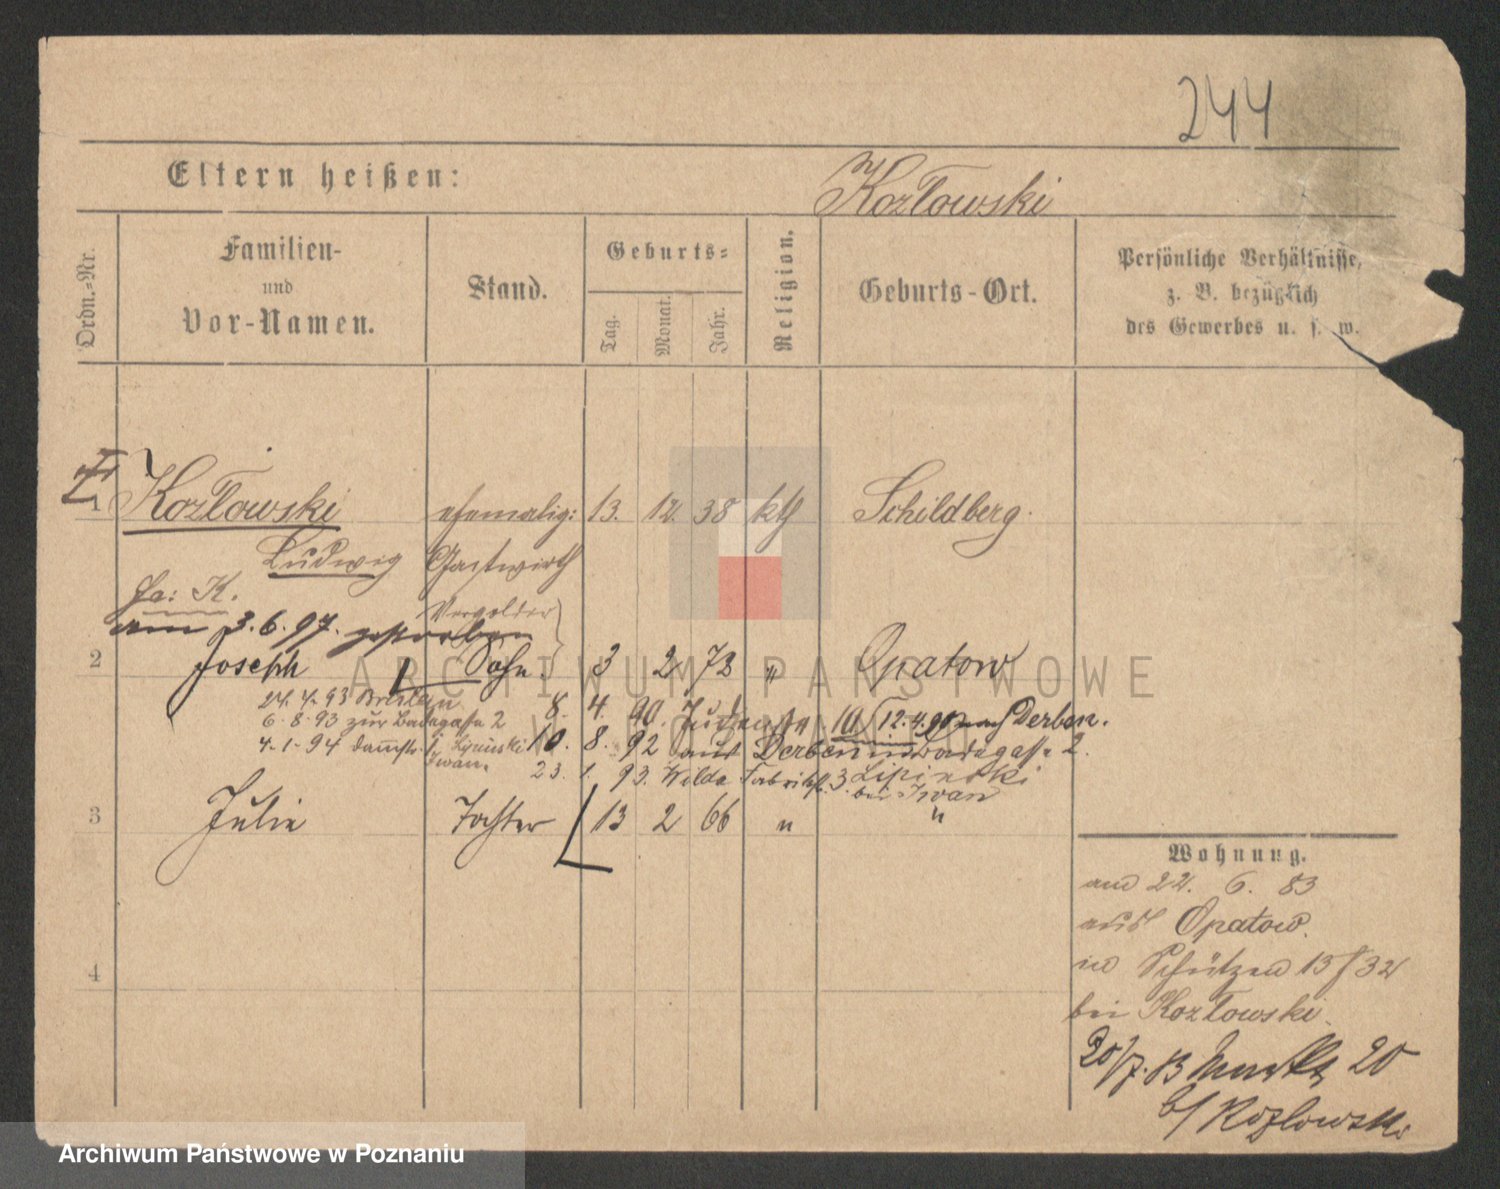 244
Eltern heißen:
Kozłowski
Ordn.-Nr.
Familien-
und
Vor-Namen.
Stand.
Geburts-
Tag.
Monat.
Jahr.
Religion.
Geburts-Ort.
Persönliche Verhältnisse,
z. B. bezüglich
des Gewerbes u. s. w.
1 Kozłowski ehemalig: 13. 12. 38 kth Schildberg.
Ludwig Gastwirth
fa: K.
Vergolder
am 3.6.97. gestorben
2 Joseph Sohn. 3 2 73 " Opatow
24.4.93 Breslau 8. 4. 90. 12.4.90 nach Derben.
6.8.93 zur Badegasse 2 10. 8. 92 aus Derben in Badegasse 2.
4.1.94 23. 1. 93. Wilda Fabrikstr. 3. Lipinski
bei Iwan
3 Julie Tochter 13 2 66 " "
Wohnung.
am 22. 6. 83
aus Opatow.
in Schützen 13/32
bei Kozłowski.
4
20/7. 83 Markt 20
b/ Kozlowski
ARCHIWUM PAŃSTWOWE
W POZNANIU
Archiwum Państwowe w Poznaniu